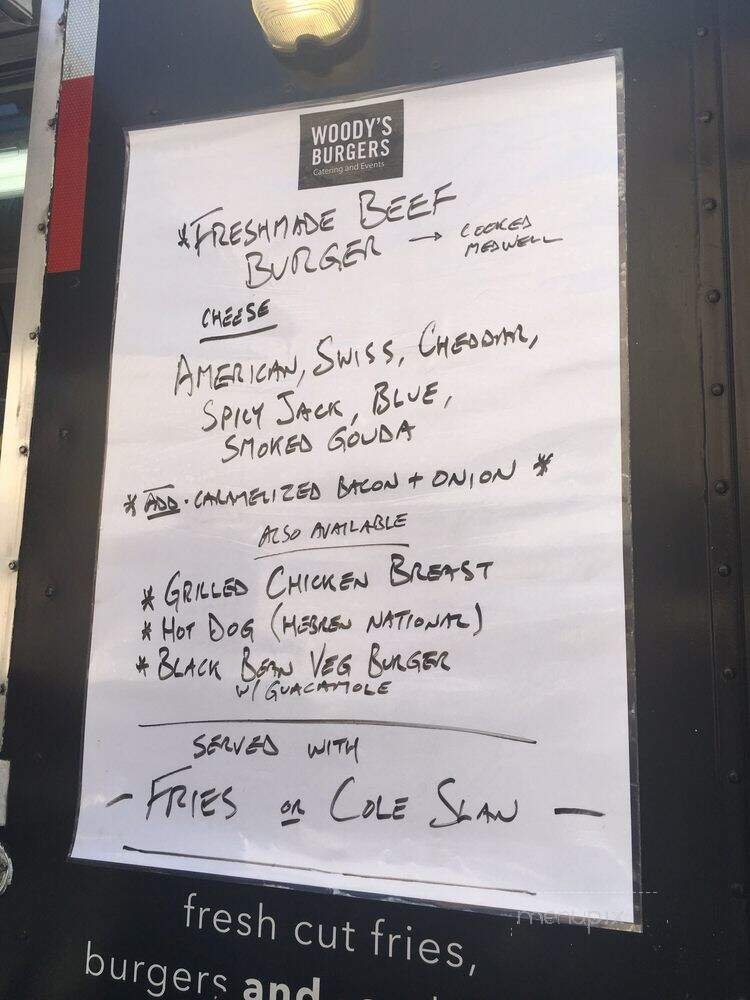 WOODY'S
BURGERS
Catering and Events
*FRESHMADE BEEF
BURGER → COOKED
MEDWELL
CHEESE
AMERICAN, SWISS, CHEDDAR,
SPICY JACK, BLUE,
SMOKED GOUDA
* ADD · CARAMELIZED BACON + ONION *
ALSO AVAILABLE
* GRILLED CHICKEN BREAST
* HOT DOG (HEBREW NATIONAL)
* BLACK BEAN VEG BURGER
W/ GUACAMOLE
SERVED WITH
- FRIES OR COLE SLAW -
fresh cut fries,
burgers and
menupix